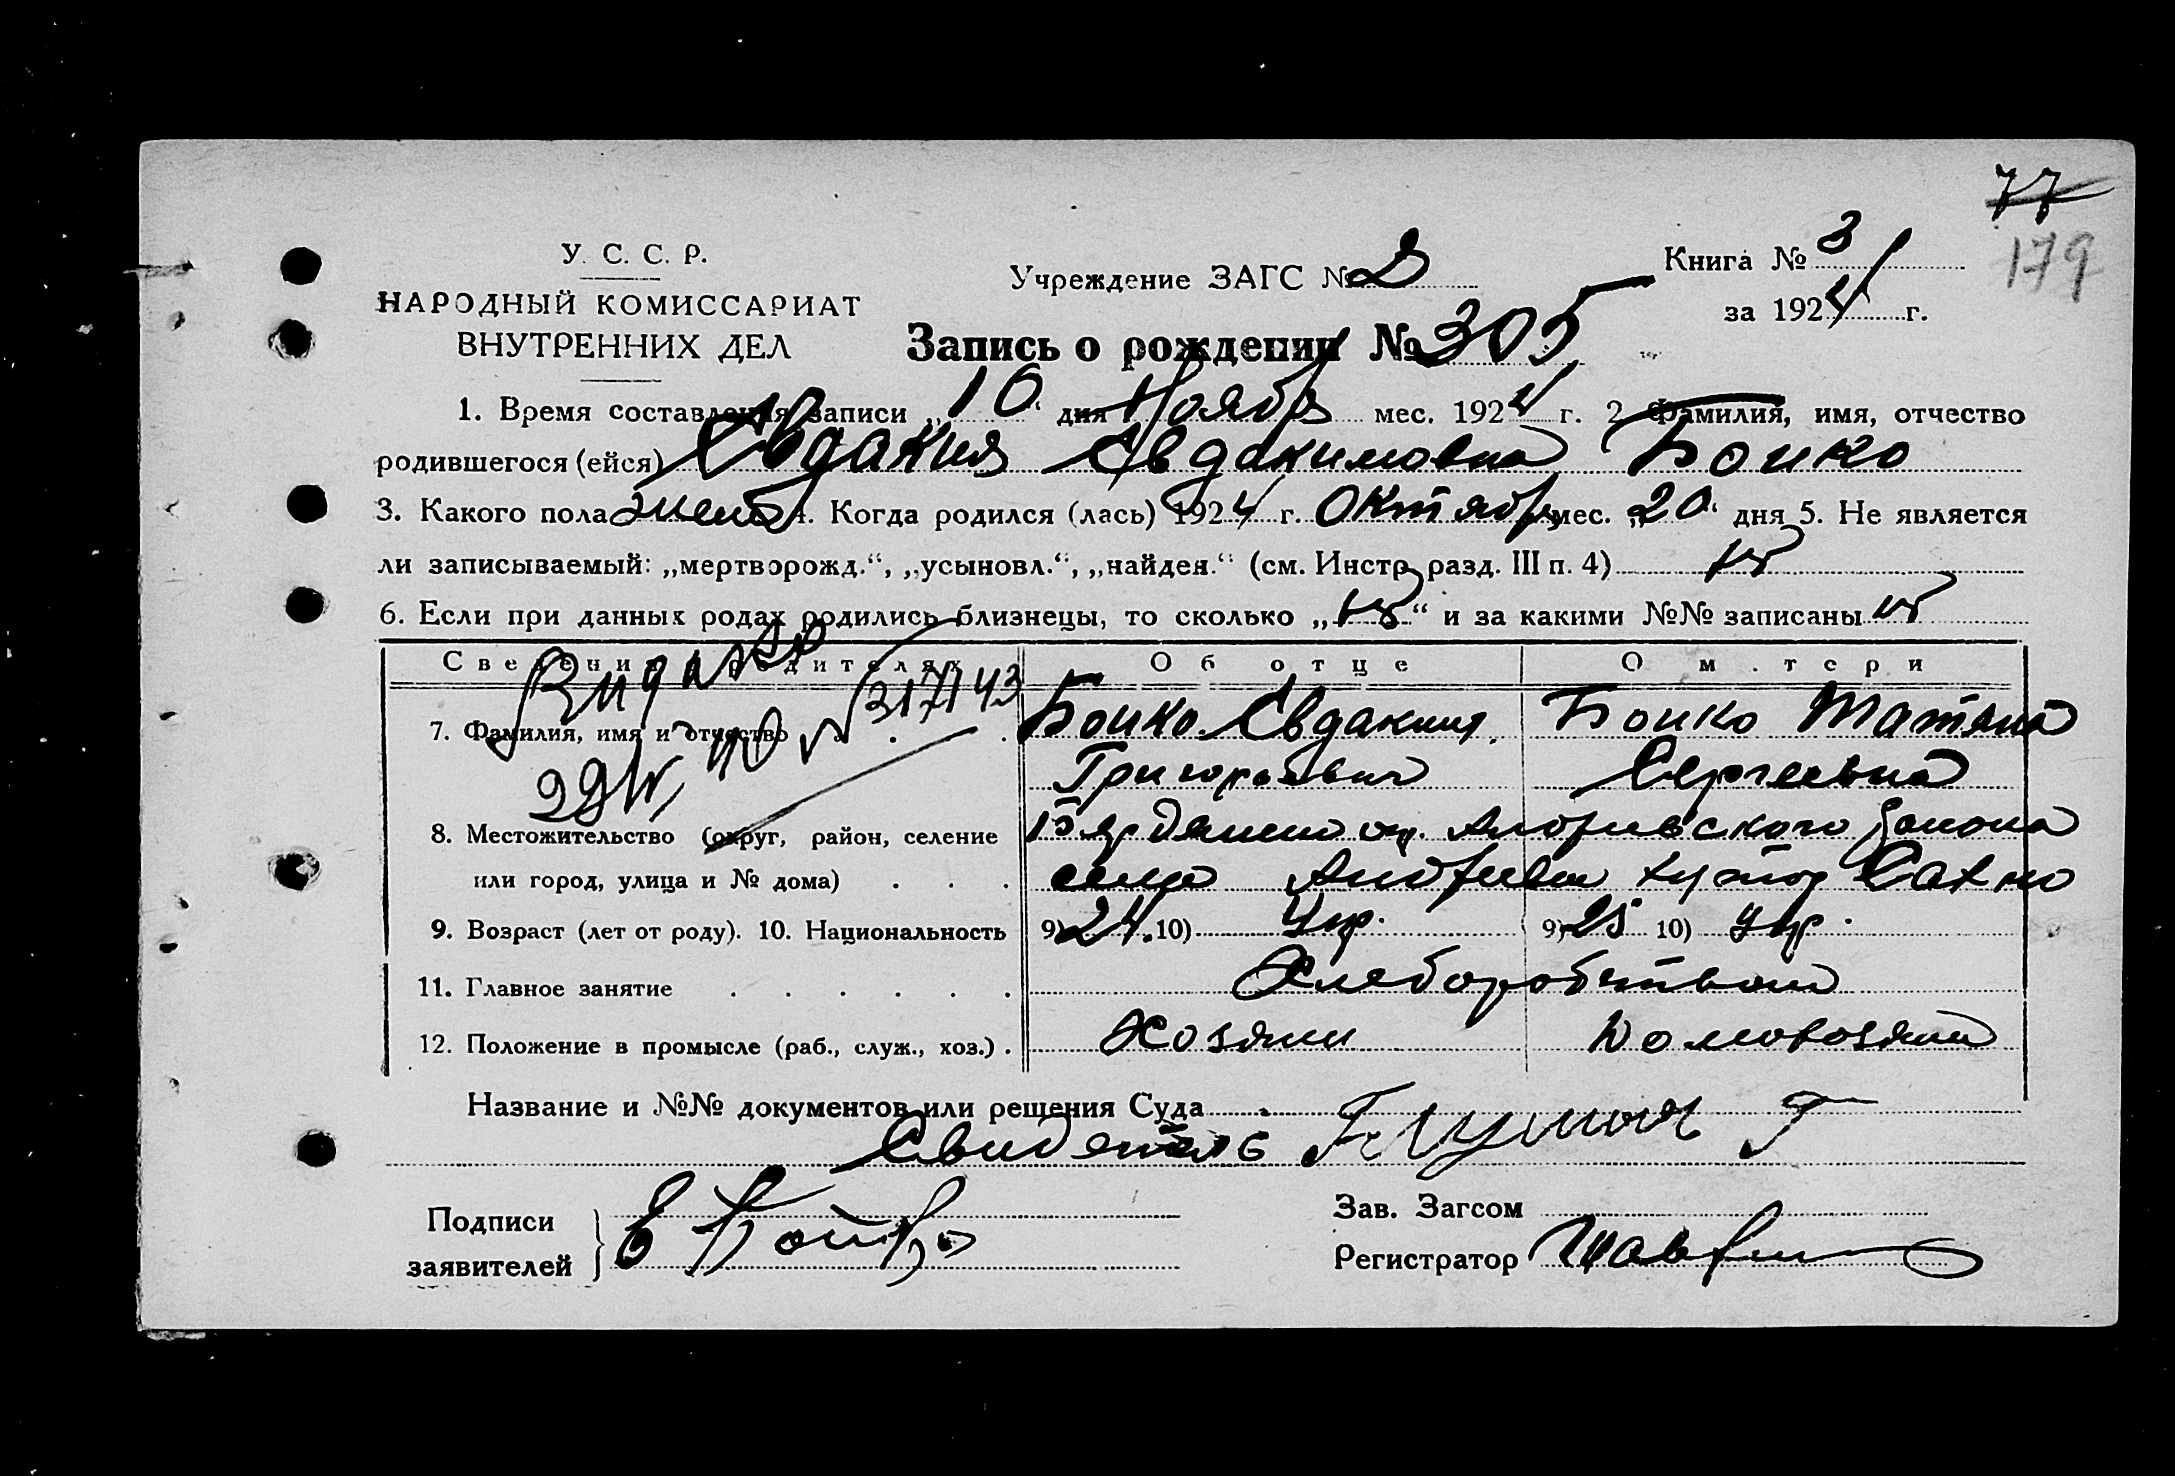 77
179
У. С. С. Р.
НАРОДНЫЙ КОМИССАРИАТ
ВНУТРЕННИХ ДЕЛ
Учреждение ЗАГС №
Книга № 3
за 1924 г.
Запись о рождении № 305
1. Время составления записи „10“ дня Ноября мес. 1924 г. 2. Фамилия, имя, отчество
родившегося (ейся) Евдакия Евдакимовна Бойко
3. Какого пола женс 4. Когда родился (лась) 1924 г. Октября мес. „20“ дня 5. Не является
ли записываемый: „мертворожд.“, „усыновл.“, „найден.“ (см. Инстр. разд. III п. 4)
6. Если при данных родах родились близнецы, то сколько „ “ и за какими №№ записаны
Сведения о родителях Об отце О матери
317143
7. Фамилия, имя и отчество Бойко Евдаким Григорьевич Бойко Татяна Сергеевна
8. Местожительство (округ, район, селение
или город, улица и № дома) Андреевского района
село хутор Сахно
9. Возраст (лет от роду). 10. Национальность 9) 24. 10) Укр. 9) 25 10) Укр.
11. Главное занятие Хлеборобством
12. Положение в промысле (раб., служ., хоз.) Хозяин Домохозяйка
Название и №№ документов или решения Суда
Свидетель
Подписи
заявителей Е Бойко
Зав. Загсом
Регистратор